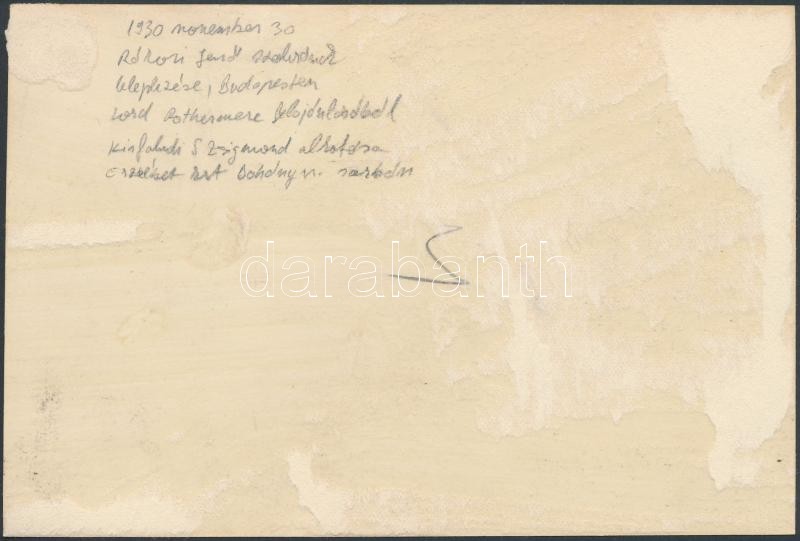 1930 november 30
Rákosi Jenő szobrának
leleplezése, Budapesten
Lord Rothermere felajánlásából
Kisfaludi S Zsigmond alkotása
Erzsébet krt Dohány u. sarkán
darabanth